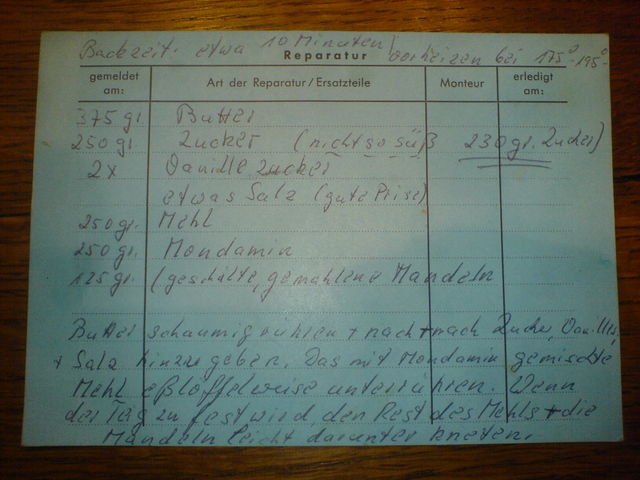 Backzeit: etwa 10 Minuten / vorheizen bei 175°-195°
Reparatur
gemeldet am: Art der Reparatur/Ersatzteile Monteur erledigt am:
375 gr. Butter
250 gr. Zucker (nicht so süß 230 gr. Zucker)
2x Vanillezucker
etwas Salz (gute Prise)
250 gr. Mehl
250 gr. Mondamin
125 gr. (geschälte, gemahlene Mandeln
Butter schaumig rühren + nach + nach Zucker, Vanillez.
+ Salz hinzu geben. Das mit Mondamin gemischte
Mehl eßlöffelweise unterrühren. Wenn
der Teig zu fest wird, den Rest des Mehls + die
Mandeln leicht darunter kneten.